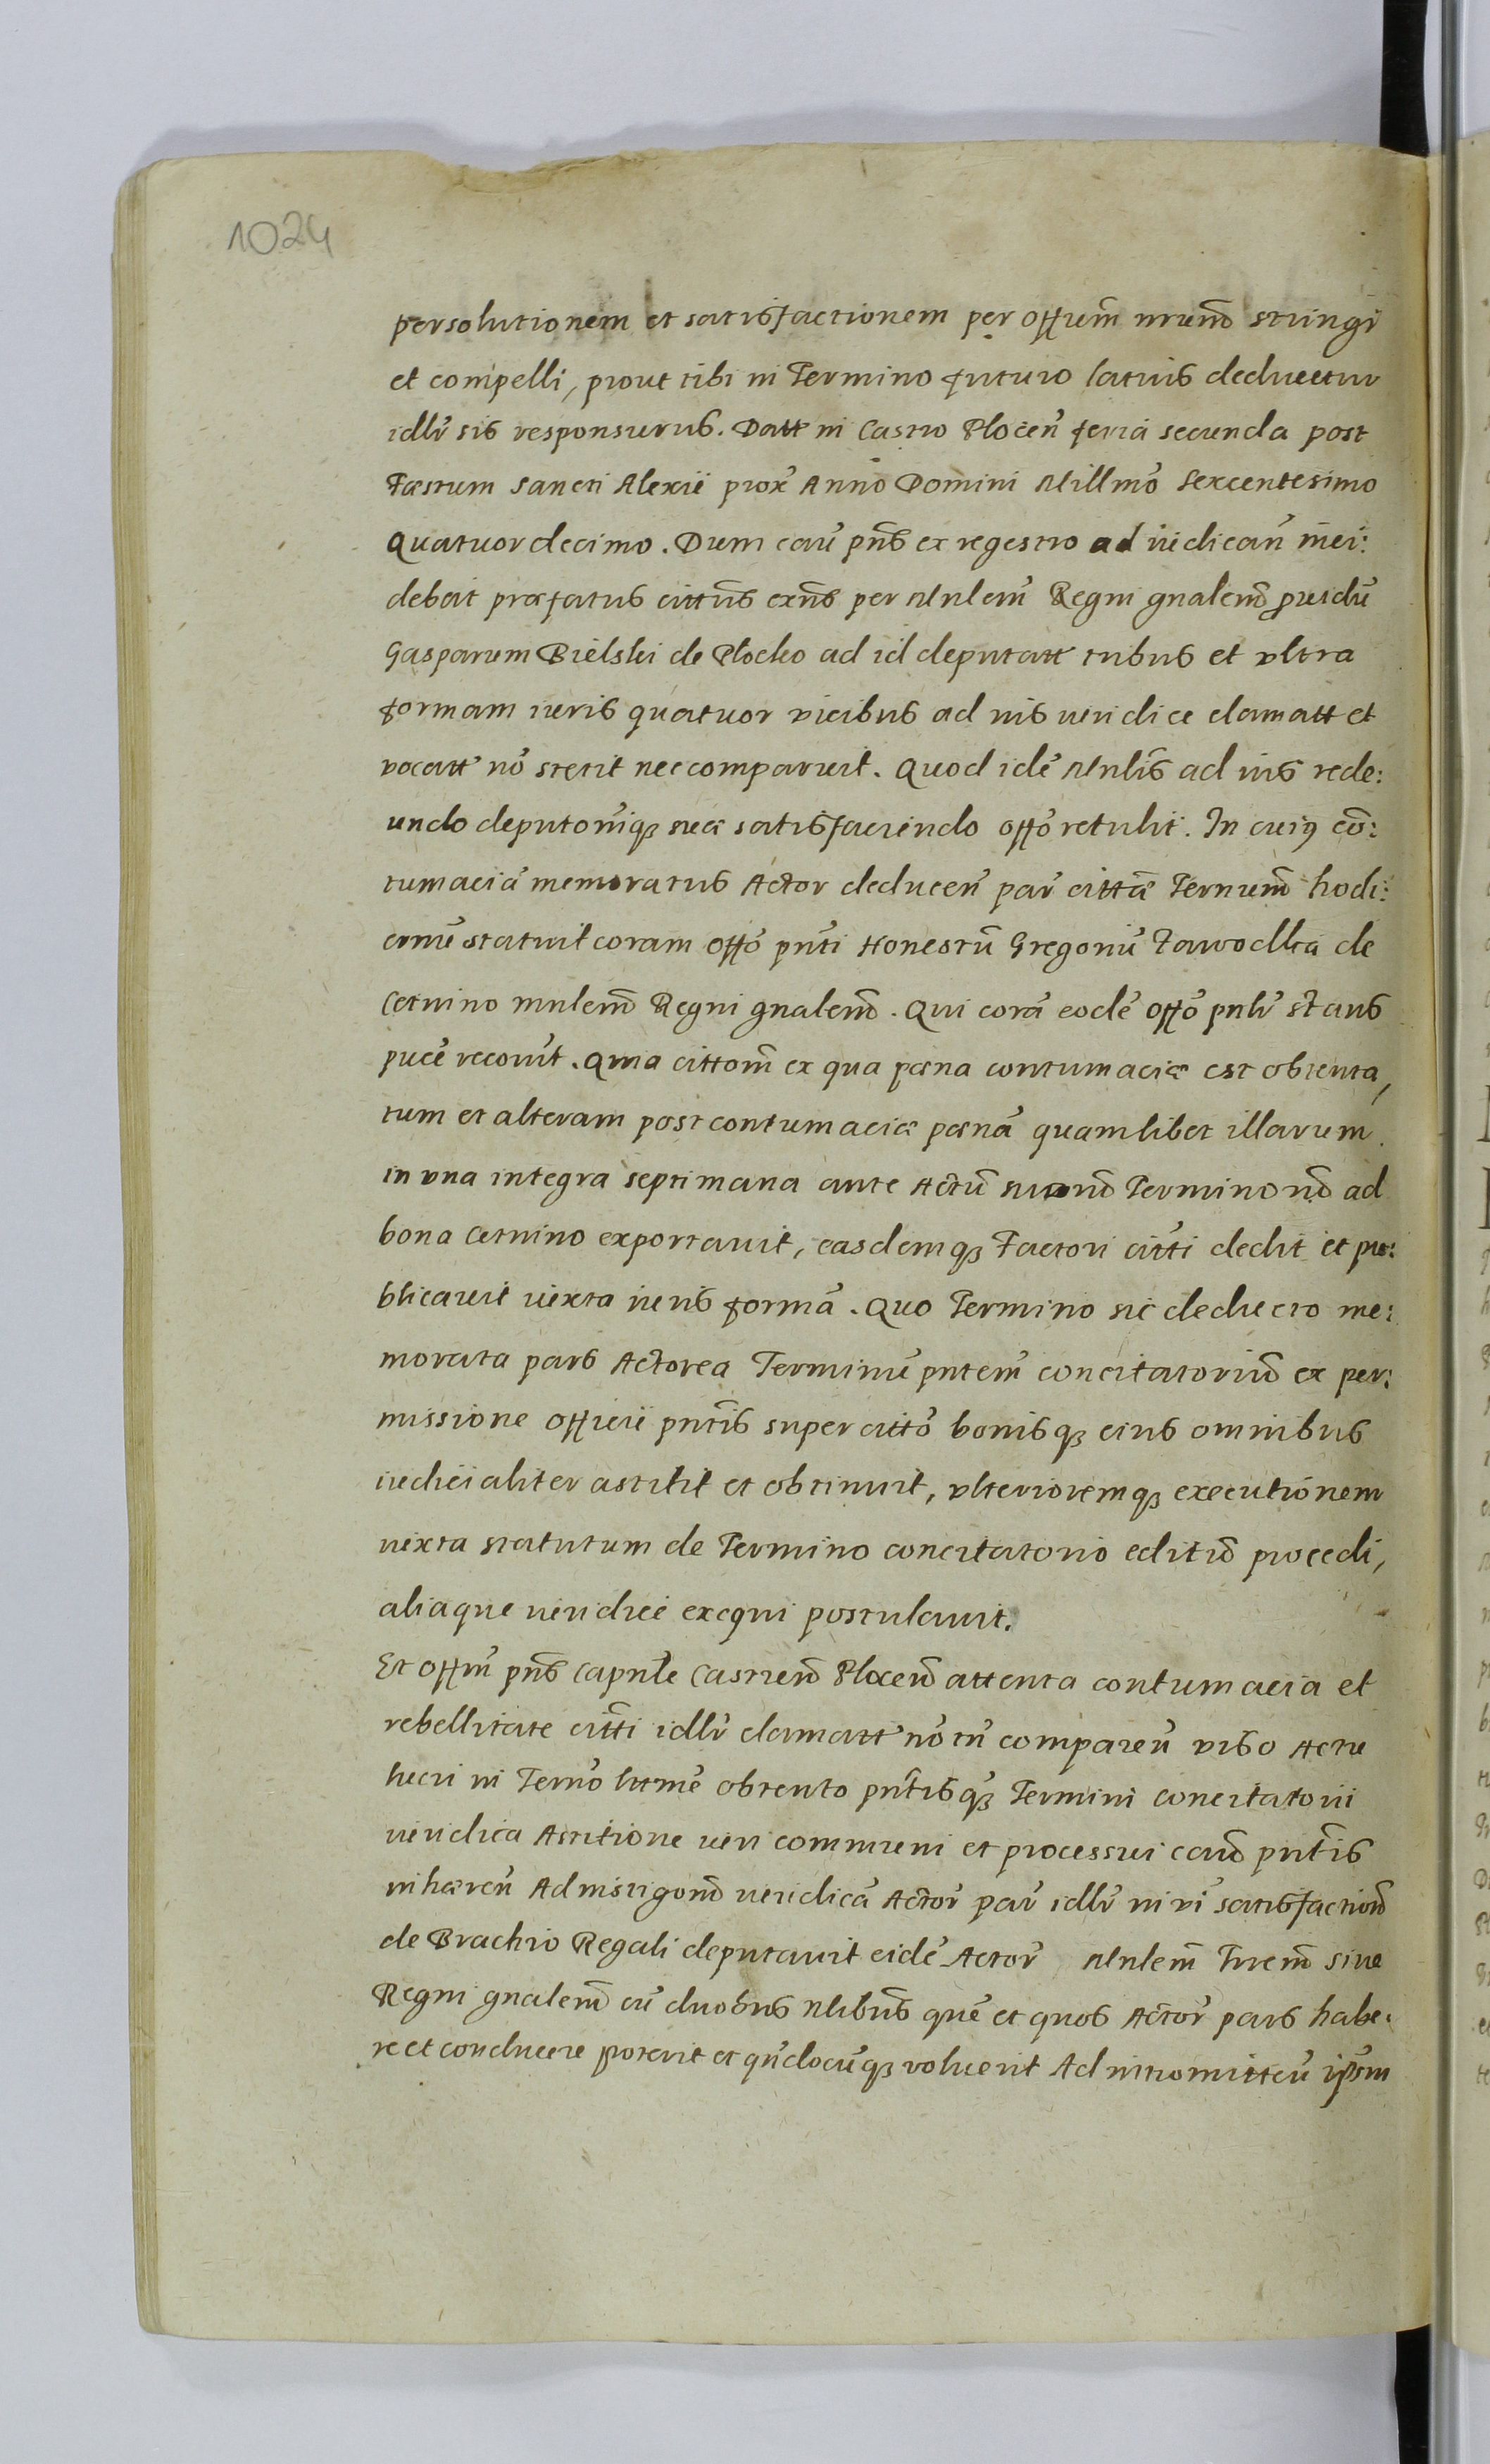 1024
persolutionem et satisfactionem per Offum̄ nrum̄ stringi
et compelli, prout tibi in Termino futuro latius deducetur
idlr̄ sis responsurus. Datt in Castro Plocen̄ feria secunda post
Fæstum Sancti Alexii prox̄ Anno Domini Millmō Sexcentesimo
Quatuor decimo. Dum cau̅ pn̄s ex regestro ad iudican̄ inci:
debat præfatus citt̄us exn̄s per Mnlem̄ Regni gnalem̄ pruidū
Gasparum Bielski de Plocko ad id deputatt tribus et vltra
formam iuris quatuor vicibus ad ius iuridice clamatt et
vocatt nō stetit nec comparuit. Quod idē Mnlis̄ ad ius rede:
undo deputoniq̄ꝫ suæ satisfaciendo offō retulit. In cuiꝰ cō:
tumaciā memoratus Actor deducen̄ par̄ cittā Ternum̄ hodi:
ernū statuit coram Offō pnti Honestū Gregoriū Zawodka de
Cetnino mnlem̄ Regni gnalem̄. Qui corā eodē Offō pnlr̄ stans
pucē recōuit. Quia cittom̄ ex qua pæna contumaciæ est obtenta,
tum et alteram post contumaciæ pænā quamlibet illarum
in vna integra septimana ante Actū suorum̄ Terminorum̄ ad
bona Cetnino exportauit, easdemqꝫ Factori citti dedit et pu:
blicauit iuxta iuris formā. Quo Termino sic deducto me:
morata pars Actorea Terminū pntem̄ concitatorium̄ ex per:
missione Officii pntis̄ super cittō bonisqꝫ eius omnibus
iudicialiter astitit et obtinuit, vlterioremqꝫ executionem
iuxta statutum de Termino concitatorio editum̄ procedi,
aliaque iuridice exequi postulauit.
Et Offm̄ pn̄s Capnle Castren̄ Plocen̄ attenta contumacia et
rebellitate citti idlr̄ clamatt nō tn̄ comparen̄ viso Actu
lucri in Ternō ltimē obtento pntisqꝫ Termini concitatorii
iuridica Astitione iuri communi et processui cau̅ pntis̄
inhæren̄ Ad instigonem̄ iuridicā Actor̄ par̄ idlr̄ in vī satisfaction̄
de Brachio Regali deputauit eidē Actor̄ Mnlem̄ Trem̄ siue
Regni gnalem̄ cū duobus Nlibus̄ quē et quos Actor̄ pars habe:
re et conducere poterit et qn̄docūqꝫ voluerit Ad intromitten̄ ipsm̄